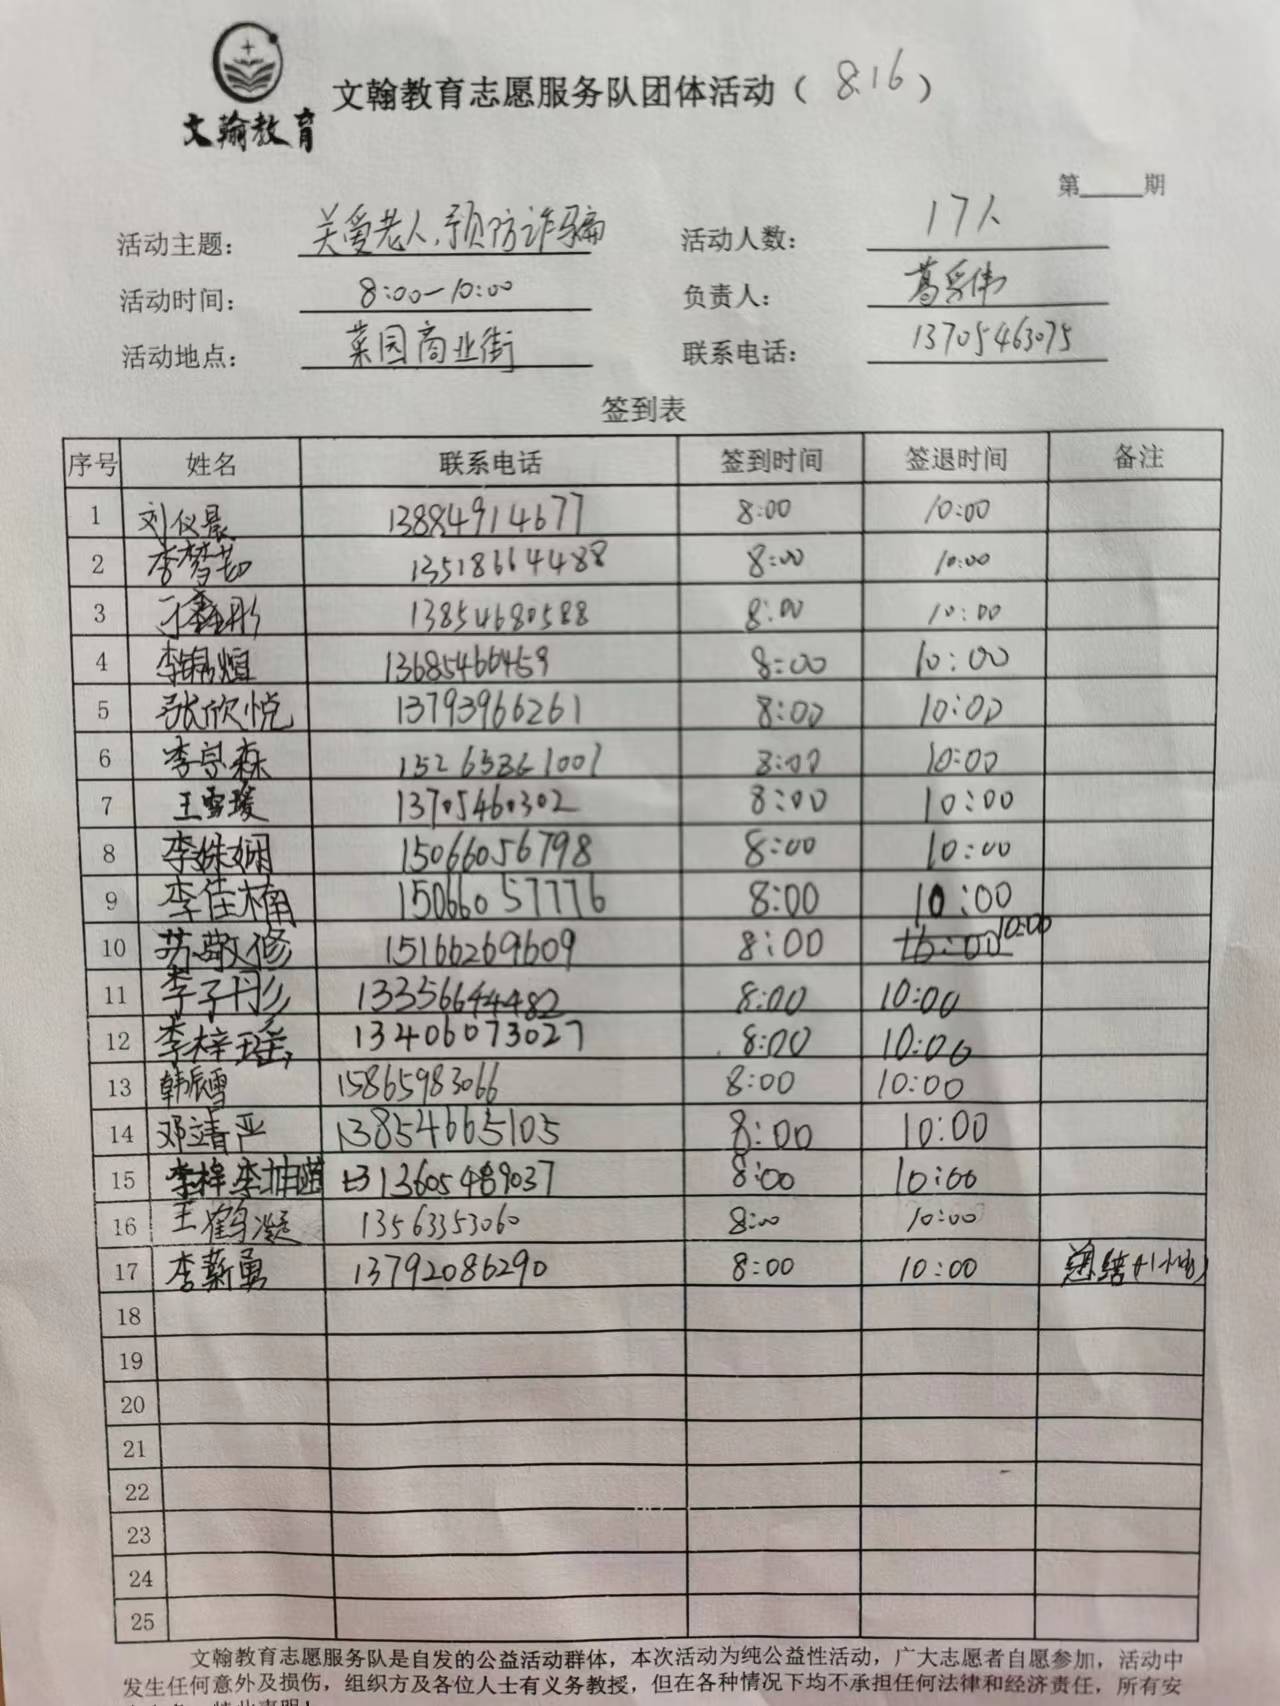 文翰教育
文翰教育志愿服务队团体活动（ 8.16 ）
第 期
活动主题： 关爱老人,预防诈骗 活动人数： 17人
活动时间： 8:00-10:00 负责人： 葛 伟
活动地点： 菜园商业街 联系电话： 13705463075
签到表
序号 姓名 联系电话 签到时间 签退时间 备注
1 刘仪晨 13884914677 8:00 10:00
2 李梦茹 13518664488 8:00 10:00
3 13854680588 8:00 10:00
4 李锦煊 13685466459 8:00 10:00
5 张欣悦 13793966261 8:00 10:00
6 李京森 8:00 10:00
7 王雪瑗 13705460302 8:00 10:00
8 李姝娴 15066056798 8:00 10:00
9 李佳楠 15066057776 8:00 10:00
10 苏敬修 15166269609 8:00 10:00
11 李子彤 13356644482 8:00 10:00
12 李梓瑶 13406073027 8:00 10:00
13 韩辰雪 15865983066 8:00 10:00
14 邓靖严 13854665105 8:00 10:00
15 李 13605489037 8:00 10:00
16 王鹤凝 13563353060 8:00 10:00
17 李薪勇 13792086290 8:00 10:00 总结(+1小时)
18
19
20
21
22
23
24
25
文翰教育志愿服务队是自发的公益活动群体，本次活动为纯公益性活动，广大志愿者自愿参加，活动中
发生任何意外及损伤，组织方及各位人士有义务教授，但在各种情况下均不承担任何法律和经济责任，所有安